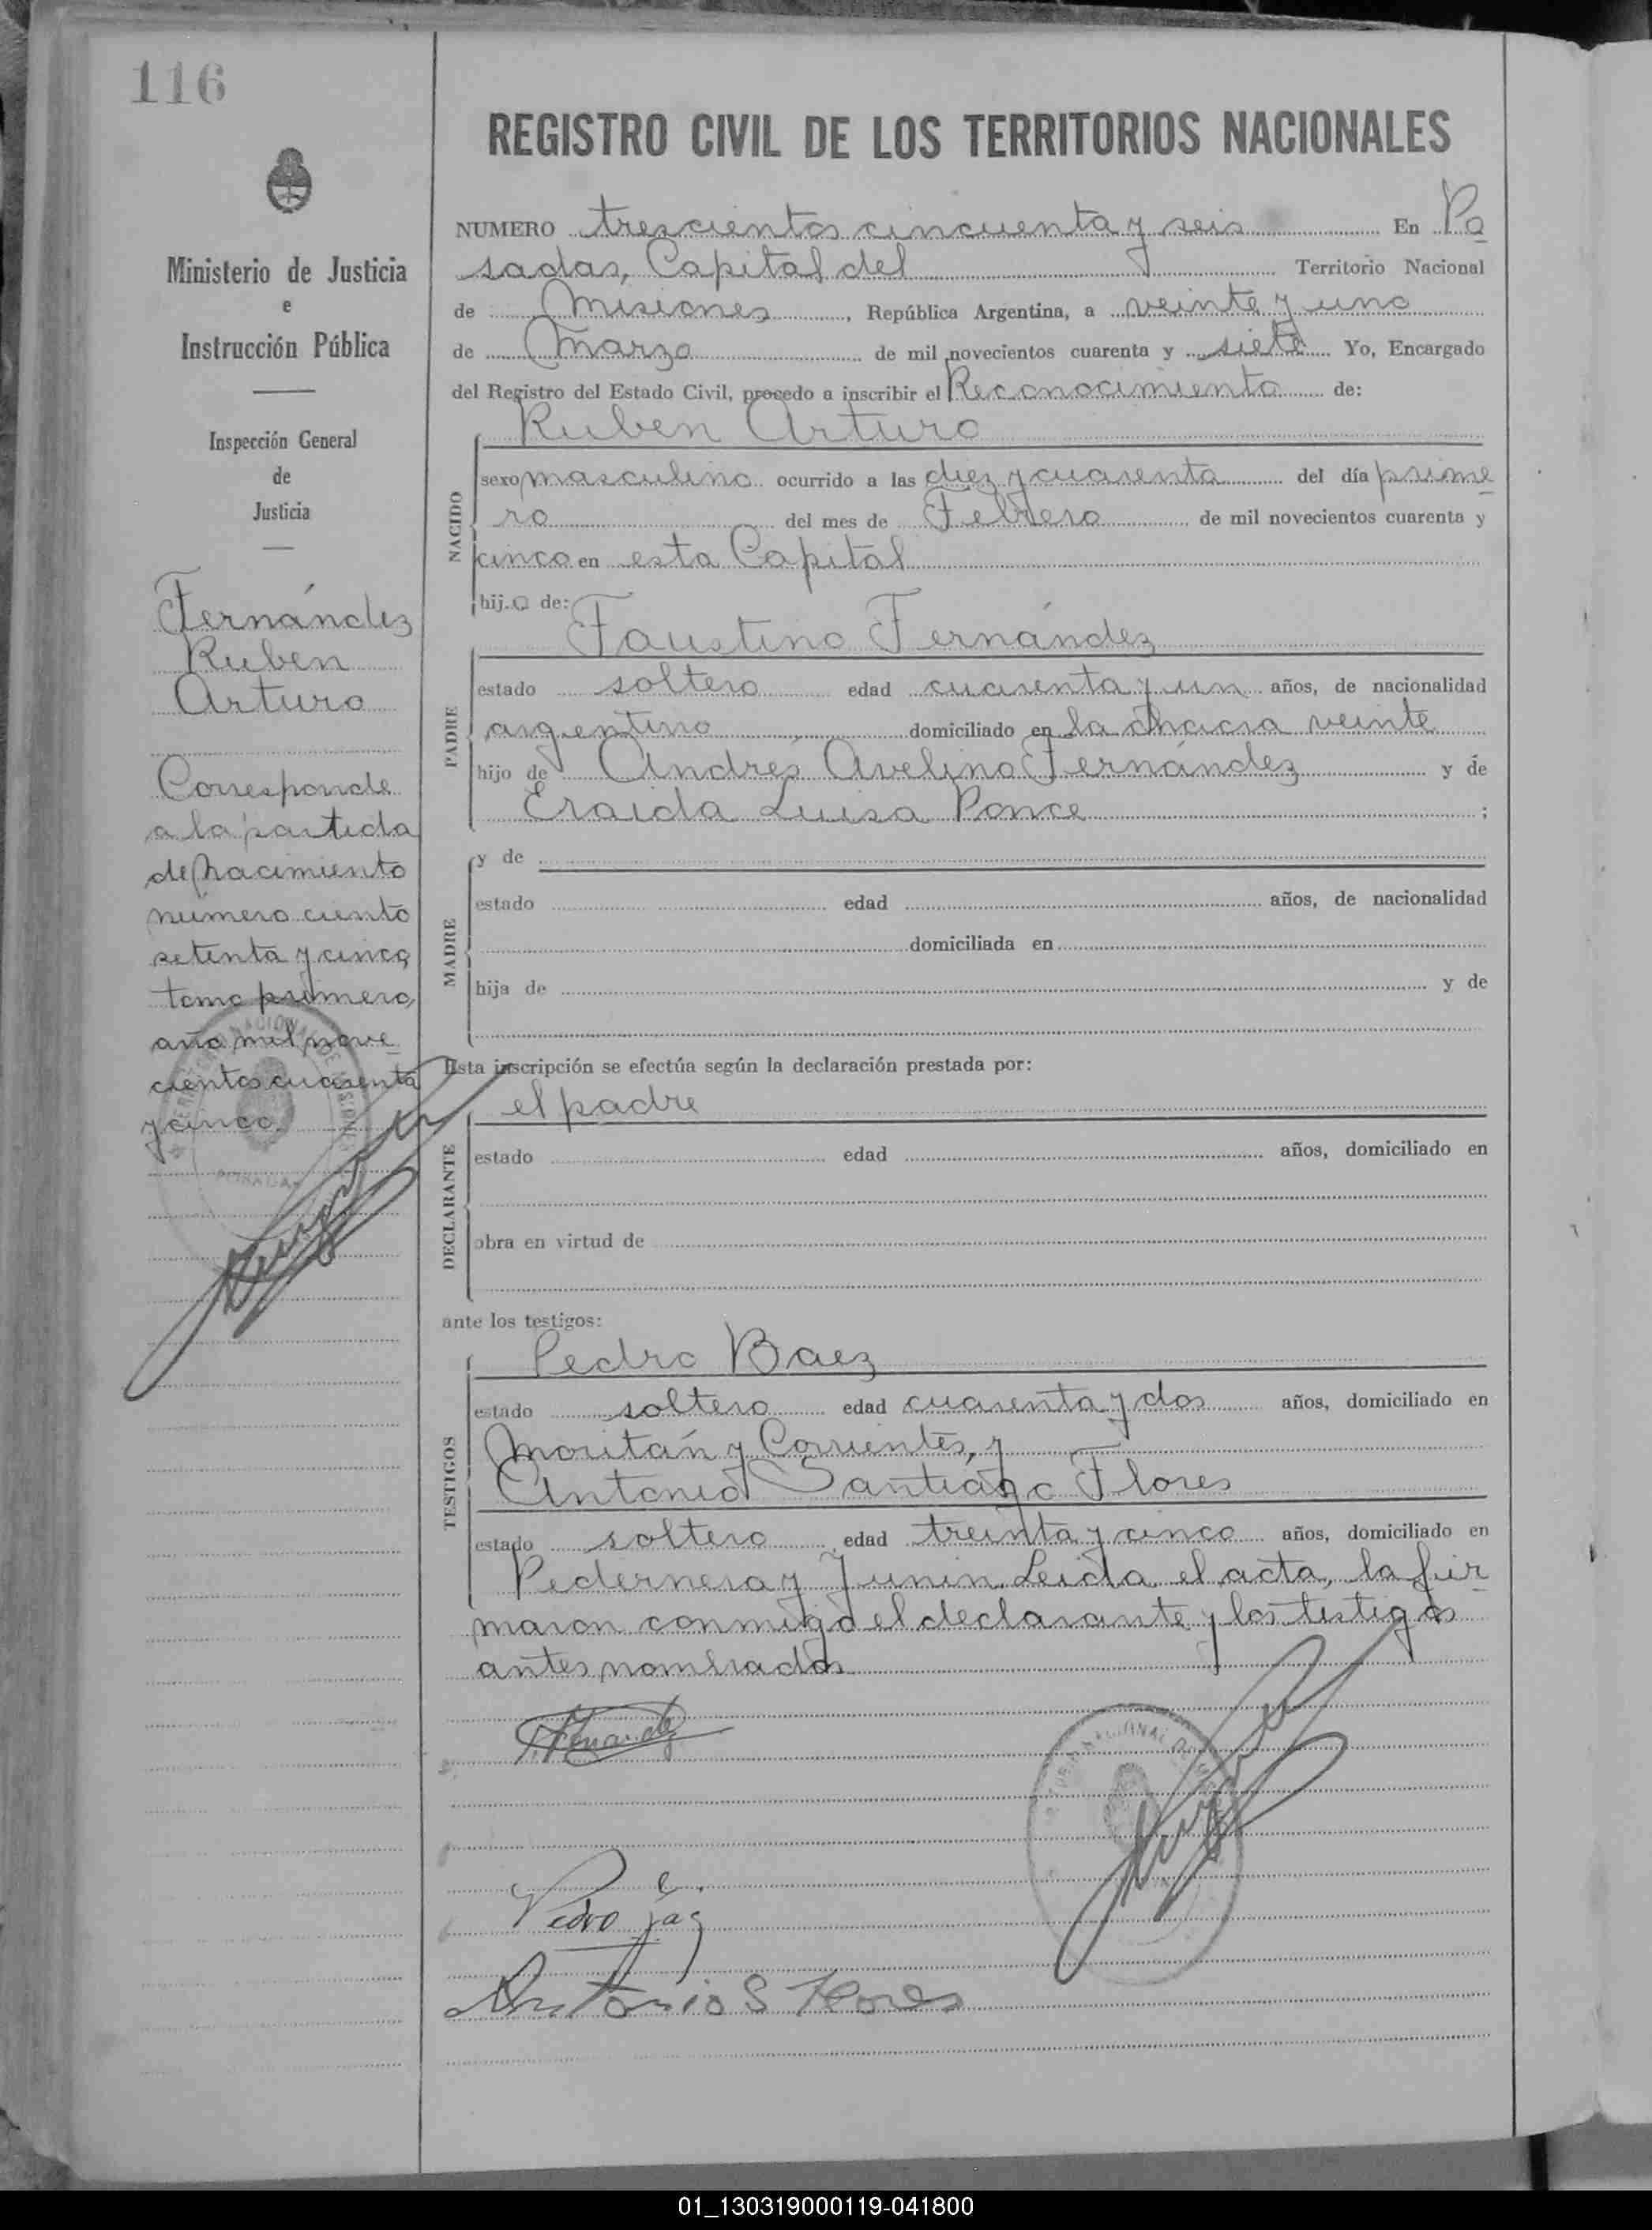 116
REGISTRO CIVIL DE LOS TERRITORIOS NACIONALES
Ministerio de Justicia
e
Instrucción Pública
Inspección General
de
Justicia
Fernández
Ruben
Arturo
Corresponde
a la partida
de nacimiento
número ciento
setenta y cinco,
tomo primero,
año mil nove
cientos cuarenta
y cinco.
NUMERO trescientos cincuenta y seis En Po
sadas, Capital del Territorio Nacional
de Misiones, República Argentina, a veinte y uno
de Marzo de mil novecientos cuarenta y siete Yo, Encargado
del Registro del Estado Civil, procedo a inscribir el Reconocimiento de:
NACIDO
Ruben Arturo
sexo masculino ocurrido a las diez y cuarenta del día prime
ro del mes de Febrero de mil novecientos cuarenta y
cinco en esta Capital
hijo de:
PADRE
Faustino Fernández
estado soltero edad cuarenta y un años, de nacionalidad
argentino domiciliado en la chacra veinte
hijo de Andrés Avelino Fernández y de
Eraida Luisa Ponce ;
MADRE
y de
estado edad años, de nacionalidad
domiciliada en
hija de y de
Esta inscripción se efectúa según la declaración prestada por:
DECLARANTE
el padre
estado edad años, domiciliado en
obra en virtud de
ante los testigos:
TESTIGOS
Pedro Baez
estado soltero edad cuarenta y dos años, domiciliado en
Moritán y Corrientes, y
Antonio Santiago Flores
estado soltero edad treinta y cinco años, domiciliado en
Pedernera y Junin. Leida el acta, la fir
maron conmigo el declarante y los testigos
antes nombrados
F. Fernandez
Pedro
Antonio S Flores
POSADAS
01_130319000119-041800